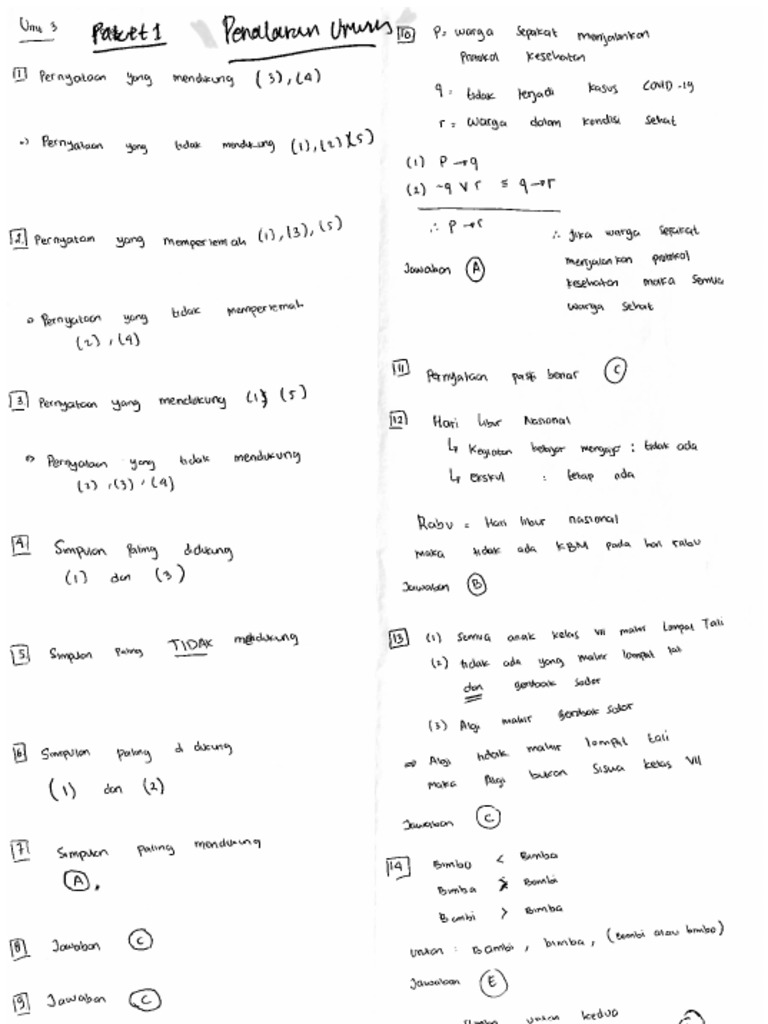 Paket 1 Penalaran Umum
1 Pernyataan yang mendukung (3), (4)
Pernyataan yang tidak mendukung (1), (2) (5)
2 Pernyataan yang memperlemah (1), (3), (5)
Pernyataan yang tidak memperlemah
(2), (4)
3 Pernyataan yang mendukung (1) (5)
Pernyataan yang tidak mendukung
(2), (3), (4)
4 Simpulan paling didukung
(1) dan (3)
5 Simpulan paling TIDAK mendukung
6 Simpulan paling didukung
(1) dan (2)
7 Simpulan paling mendukung
A.
8 Jawaban C
9 Jawaban C
10 P = warga sepakat menjalankan
Protokol kesehatan
q = tidak terjadi kasus COVID-19
r = warga dalam kondisi sehat
(1) P → q
(2) ~q ∨ r ≡ q → r
∴ P → r
Jawaban A
∴ Jika warga sepakat
menjalankan protokol
kesehatan maka semua
warga sehat
11 Pernyataan pasti benar C
12 Hari libur Nasional
↳ Kegiatan belajar mengajar : tidak ada
↳ ekskul : tetap ada
Rabu = Hari libur nasional
maka tidak ada KBM pada hari rabu
Jawaban B
13 (1) Semua anak kelas VII mahir Lompat Tali
(2) tidak ada yang mahir lompat tali
dan gerobak sodor
(3) Algi mahir gerobak sodor
⇒ Algi tidak mahir lompat tali
maka Algi bukan siswa kelas VII
Jawaban C
14 Bimbo < Bimba
Bimba Bombi
Bombi > Bimba
urutan : Bambi, bimba, (Bombi atau bimbo)
Jawaban E
urutan kedua